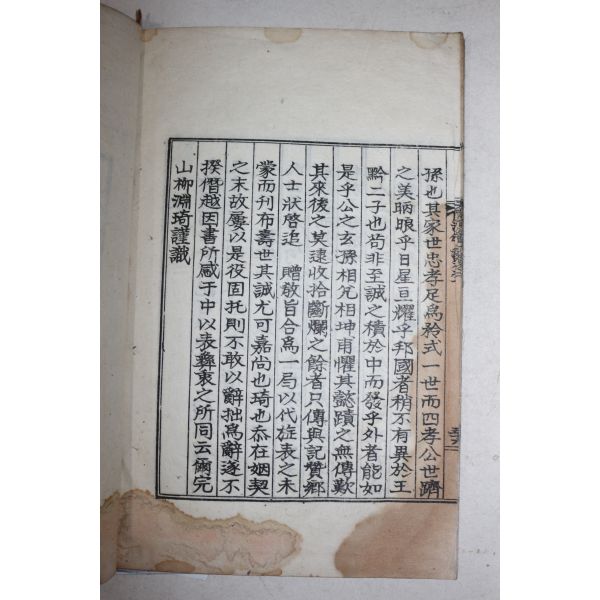 孫也其家世忠孝足爲矜式一世而四孝公世躋
之美昞眼乎日星亘耀乎邦國者稍不有異於王
黔二子也苟非至誠之積於中而發乎外者能如
是乎公之玄孫相允相坤甫懼其懿蹟之無傳歎
其來後之莫遠收拾斷爛之餘者只傳與記贊鄕
人士狀啓追 贈敎旨合爲一局以代旋表之未
蒙而刊布壽世其誠尤可嘉尚也琦也忝在姻契
之末故屢以是役固托則不敢以辭拙爲辭遂不
揆僭越因書所感于中以表彝衷之所同云爾完
山柳淵琦謹識